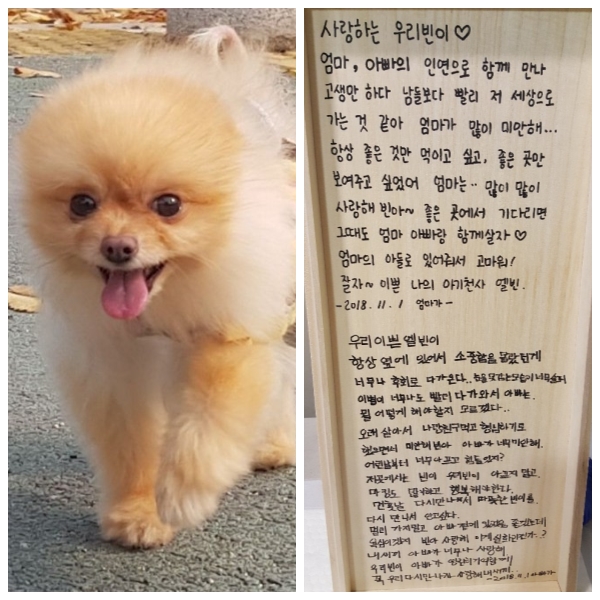 사랑하는 우리빈이♡
엄마, 아빠의 인연으로 함께 만나
고생만 하다 남들보다 빨리 저 세상으로
가는 것 같아 엄마가 많이 미안해...
항상 좋은 것만 먹이고 싶고, 좋은 곳만
보여주고 싶었어 엄마는.. 많이 많이
사랑해 빈아~ 좋은 곳에서 기다리면
그때도 엄마 아빠랑 함께살자♡
엄마의 아들로 있어줘서 고마워!
잘자~ 이쁜 나의 아기천사 엘빈.
-2018. 11. 1 엄마가-
우리이쁜 엘빈이
항상 옆에 있어서 소중함을 몰랐던게
너무나 후회로 다가온다..
이별이 너무나도 빨리 다가와서 아빠는.
뭘 어떻게 해야할지 모르겠다..
오래 살아서
미안해 빈아 아빠가 너무미안해.
어린날부터 너무아프고 힘들었지?
빈이 우리빈이 아프지 말고.
행복해야한다.
다시만나
다시 만나서 살고싶다.
멀리 가지말고 아빠
빈아 사랑해
내새끼 아빠가 너무나 사랑해
우리빈이 아빠가
꼭 우리다시만나자 사랑해내새끼.
-2018.11.1아빠가-